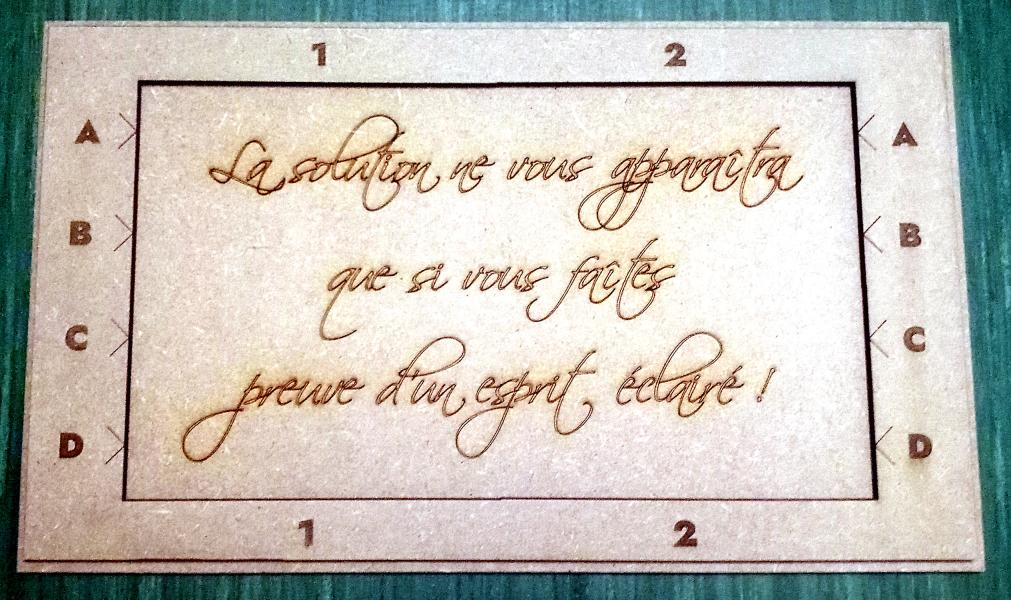 1 2
A A
La solution ne vous apparaîtra
B B
que si vous faîtes
C C
preuve d'un esprit éclairé !
D D
1 2